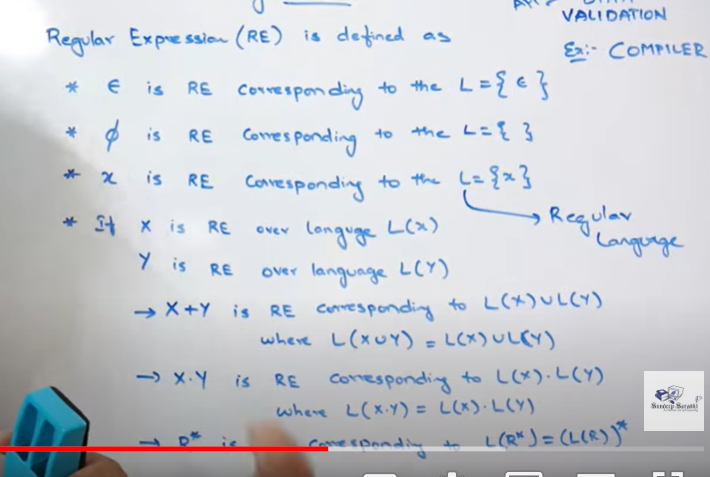 VALIDATION
Regular Expression (RE) is defined as
Ex:- COMPILER
* ϵ is RE corresponding to the L = { ϵ }
* ϕ is RE corresponding to the L = { }
* x is RE corresponding to the L = {x}
Regular Language
* If X is RE over languge L(X)
Y is RE over language L(Y)
→ X+Y is RE corresponding to L(X)∪L(Y)
where L(X∪Y) = L(X)∪L(Y)
→ X.Y is RE corresponding to L(X).L(Y)
where L(X.Y) = L(X).L(Y)
→ R* is corresponding to L(R*) = (L(R))*
Sandeep Barathi